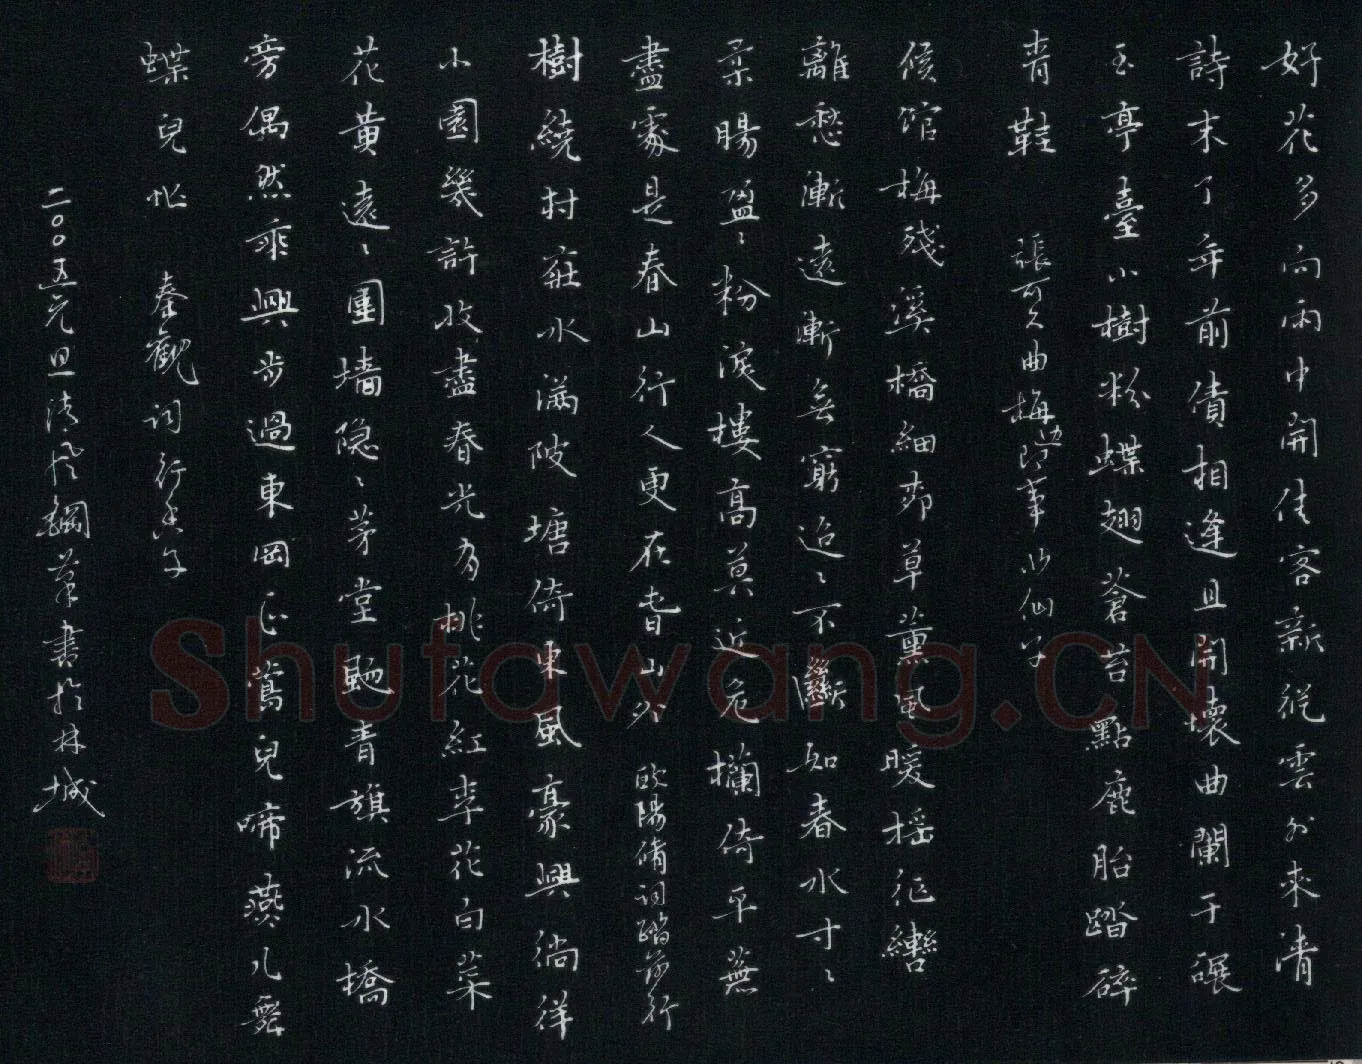 好花多向雨中開佳客新從雲外來清
詩未了年前債相逢且開懷曲闌干碾
玉亭臺小樹粉蝶翅蒼苔點鹿胎踏碎
青鞋 張可久曲梅边即事水仙子
候馆梅殘溪橋細柳草薰風暖摇征轡
離愁漸遠漸無窮迢〻不斷如春水寸〻
柔腸盈〻粉淚樓高莫近危欄倚平蕪
盡處是春山行人更在春山外 歐陽脩詞踏莎行
樹繞村莊水滿陂塘倚東風豪興徜徉
小園幾許收盡春光有桃花紅李花白菜
花黄遠〻圍墙隐〻茅堂颺青旗流水橋
旁偶然乘興步過東岡正鶯兒啼燕儿舞
蝶兒忙 秦觀詞行香子
二〇〇五元旦清風鋼筆書於林城
Shufawang.CN